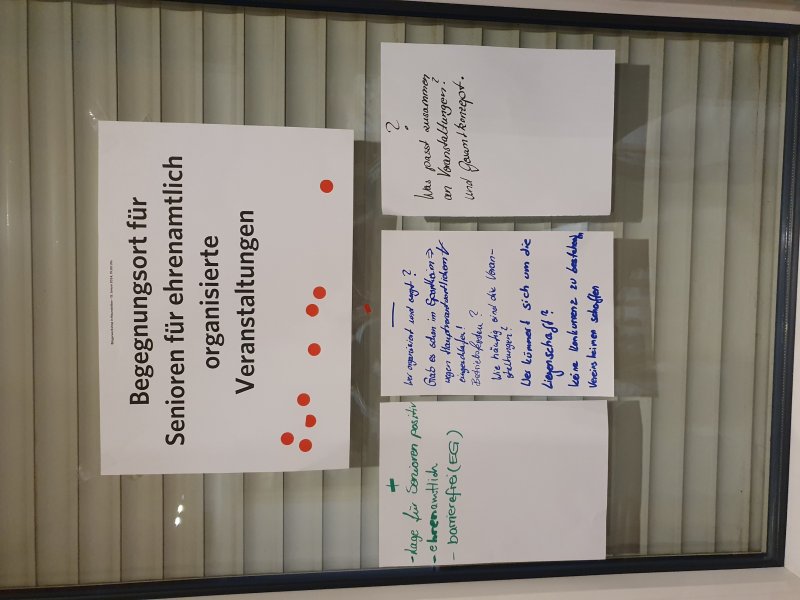 Begegnungsort für
Senioren für ehrenamtlich
organisierte
Veranstaltungen
+
- Lage für Senioren positiv
- ehrenamtlich
- barrierefrei (EG)
—
Wer organisiert und sagt?
Gab es schon im Sportheim →
wegen Hauptverantwortlichen
eingeschlafen!
Betriebskosten?
Wie häufig sind die Veran-
staltungen?
Wer kümmert sich um die
Liegenschaft?
Keine Konkurrenz zu bestehenden
Vereinsheimen schaffen
?
Was passt zusammen
an Veranstaltungen?
und Gesamtkonzept.